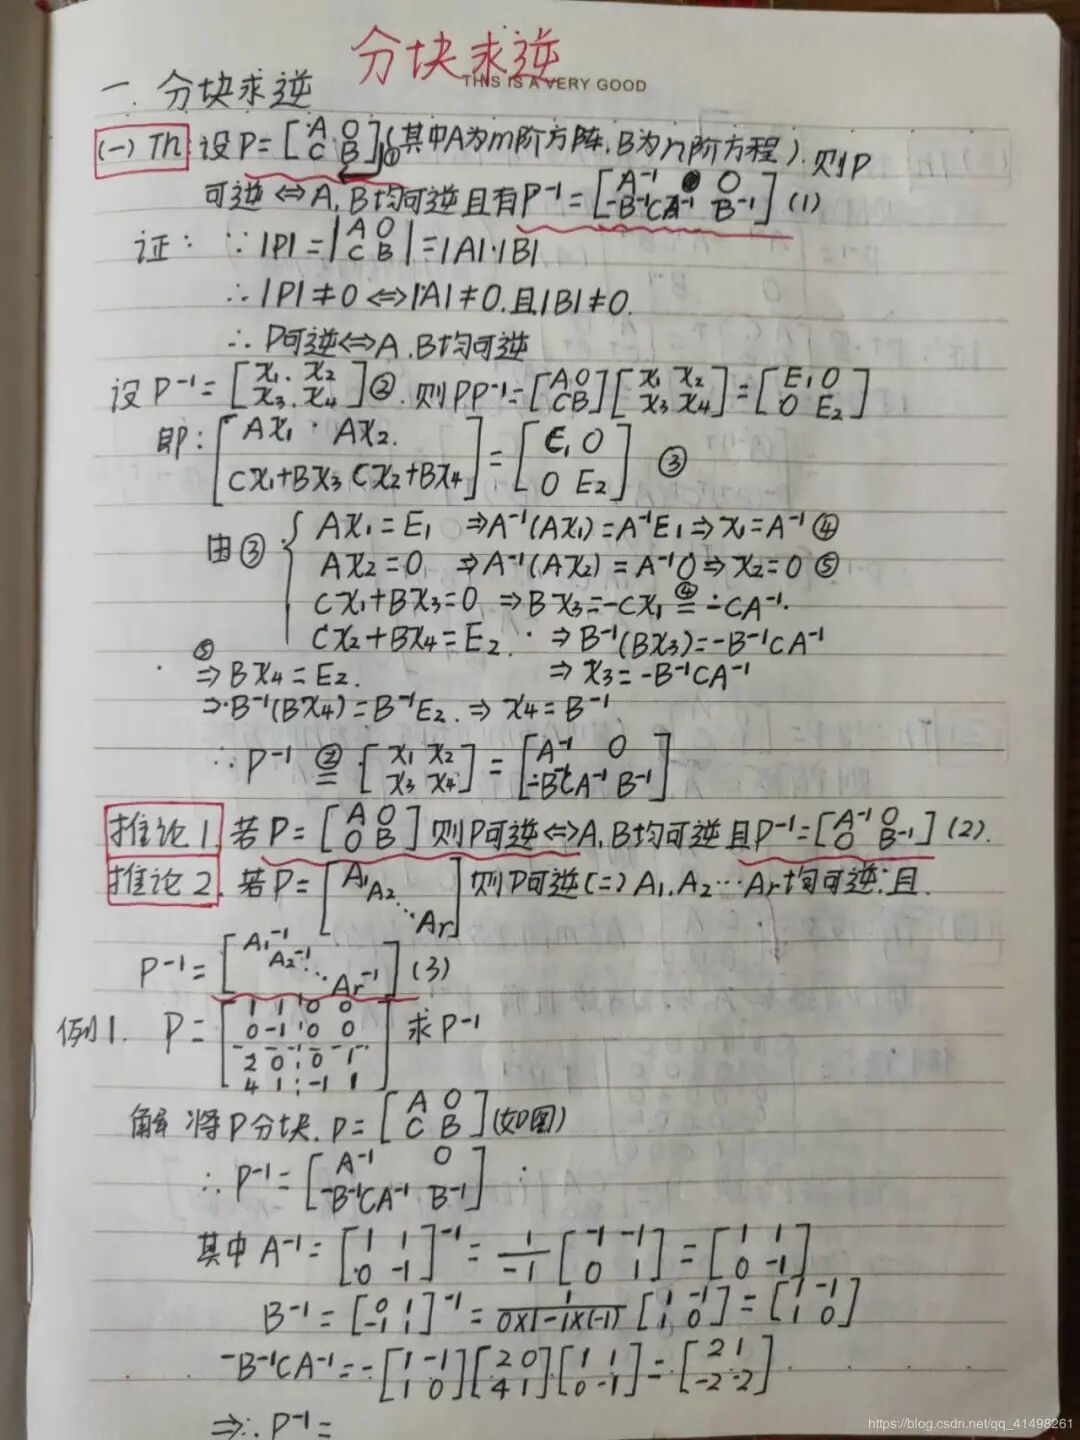 分块求逆
THIS IS A VERY GOOD
一.分块求逆
(一) Th 设P=[A O; C B]①(其中A为m阶方阵,B为n阶方程).则P
可逆⇔A,B均可逆且有P⁻¹=[A⁻¹ O; -B⁻¹CA⁻¹ B⁻¹] (1)
证: ∵|P|=|A O; C B|=|A|·|B|
∴|P|≠0⇔|A|≠0.且|B|≠0.
∴P可逆⇔A.B均可逆
设P⁻¹=[x₁. x₂; x₃. x₄]②.则PP⁻¹=[A O; C B][x₁ x₂; x₃ x₄]=[E₁ O; O E₂]
即:[Ax₁ Ax₂.; Cx₁+Bx₃ Cx₂+Bx₄]=[E₁ O; O E₂] ③
由③{ Ax₁=E₁ ⇒A⁻¹(Ax₁)=A⁻¹E₁⇒x₁=A⁻¹④
Ax₂=0 ⇒A⁻¹(Ax₂)=A⁻¹0⇒x₂=0⑤
Cx₁+Bx₃=0 ⇒Bx₃=-Cx₁ ④= -CA⁻¹.
Cx₂+Bx₄=E₂. ⇒B⁻¹(Bx₃)=-B⁻¹CA⁻¹
⑤⇒Bx₄=E₂. ⇒x₃=-B⁻¹CA⁻¹
⇒B⁻¹(Bx₄)=B⁻¹E₂.⇒x₄=B⁻¹.
∴P⁻¹ ②= [x₁ x₂; x₃ x₄]=[A⁻¹ O; -B⁻¹CA⁻¹ B⁻¹]
推论1 若P=[A O; O B]则P可逆⇔A,B均可逆且P⁻¹=[A⁻¹ O; O B⁻¹] (2).
推论2.若P=[A₁ A₂ ⋱ Ar]则P可逆(=)A₁.A₂…Ar均可逆;且.
P⁻¹=[A₁⁻¹ A₂⁻¹ ⋱ Ar⁻¹] (3)
例1. P=[1 1 0 0; 0 -1 0 0; 2 0 0 1; 4 1 -1 1] 求P⁻¹
解 将P分块.P=[A O; C B](如图)
∴P⁻¹=[A⁻¹ O; -B⁻¹CA⁻¹ B⁻¹]
其中A⁻¹=[1 1; 0 -1]⁻¹=1/-1[-1 -1; 0 1]=[1 1; 0 -1]
B⁻¹=[0 1; -1 1]⁻¹=1/0×1-1×(-1)[1 -1; 1 0]=[1 -1; 1 0]
-B⁻¹CA⁻¹=-[1 -1; 1 0][2 0; 4 1][1 1; 0 -1]=[2 1; -2 -2]
⇒∴P⁻¹=
https://blog.csdn.net/qq_41498261